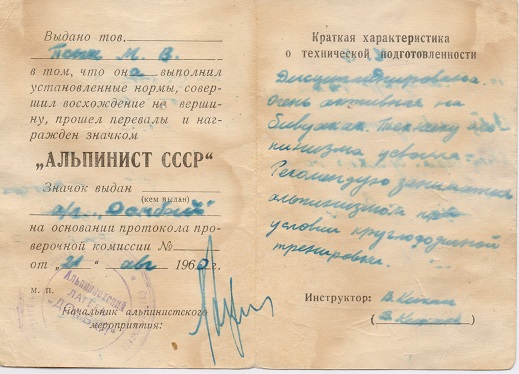 Выдано тов.
М. В.
в том, что она выполнил
установленные нормы, совер-
шил восхождение не верши-
ну, прошел перевалы и наг-
ражден значком
„АЛЬПИНИСТ СССР"
Значок выдан
(кем выдан)
а/л „Домбай"
на основании протокола про-
верочной комиссии №
от „21" авг 1960 г.
м. п.
Начальник альпинистского
мероприятия:
Альпинистский
ЛАГЕРЬ
„ДОМБАЙ"
Краткая характеристика
о технической подготовленности
Дисциплинирована.
Очень активная на
бивуаках. Технику аль-
пинизма усвоила.
Рекомендую заниматься
альпинизмом при
условии круглогодичной
тренировки.
Инструктор: